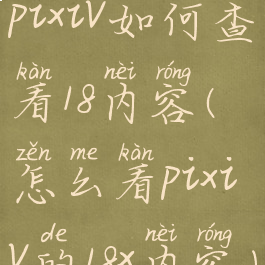 pixiv如何查
kàn nèi róng
看18内容(
zěn me kàn
怎么看pixi
de nèi róng
v的18x内容)